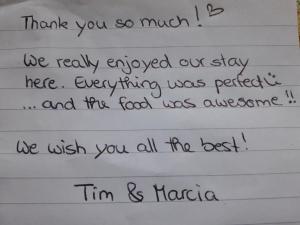 Thank you so much! ♡
We really enjoyed our stay
here. Everything was perfect ☺
... and the food was awesome!!
We wish you all the best!
Tim & Marcia